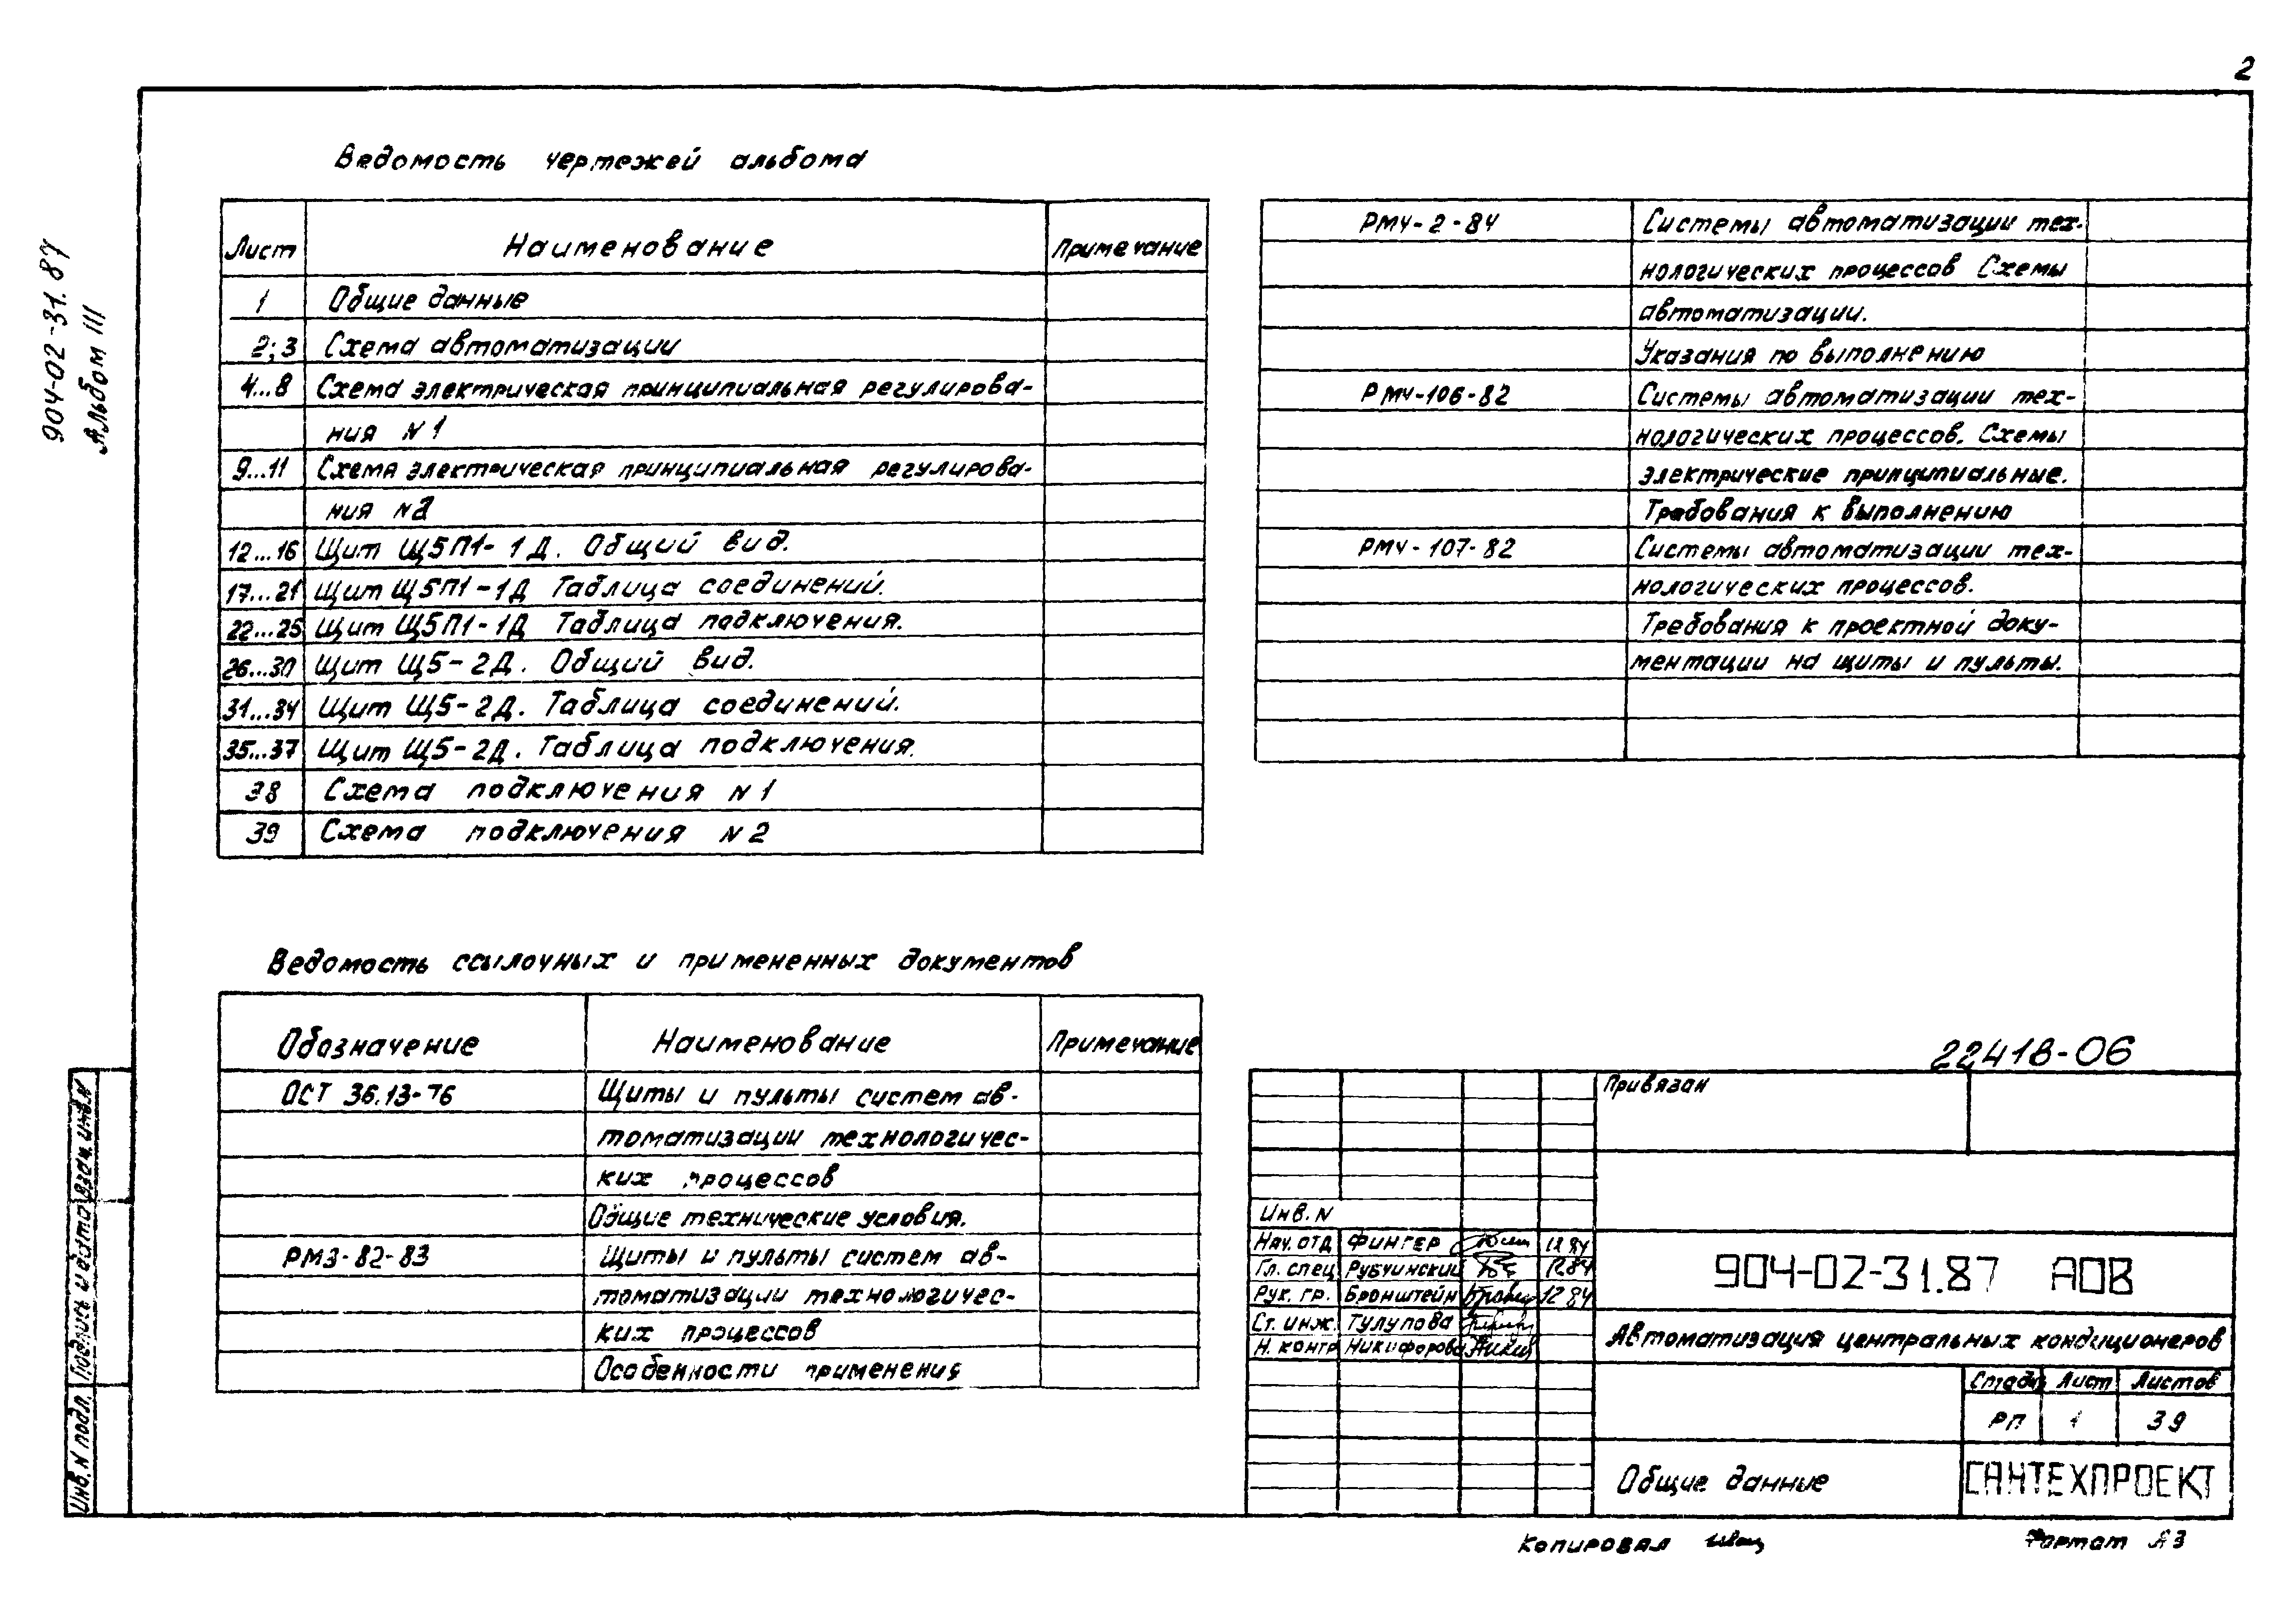 2
904-02-31.87
Альбом III
Ведомость чертежей альбома
Лист Наименование Примечание
1 Общие данные
2;3 Схема автоматизации
4...8 Схема электрическая принципиальная регулирова-
ния N1
9...11 Схема электрическая принципиальная регулирова-
ния N2
12...16 Щит Щ5П1-1Д. Общий вид.
17...21 Щит Щ5П1-1Д Таблица соединений.
22...25 Щит Щ5П1-1Д Таблица подключения.
26...30 Щит Щ5-2Д. Общий вид.
31...34 Щит Щ5-2Д. Таблица соединений.
35...37 Щит Щ5-2Д. Таблица подключения.
38 Схема подключения N1
39 Схема подключения N2
Ведомость ссылочных и примененных документов
Обозначение Наименование Примечание
ОСТ 36.13-76 Щиты и пульты систем ав-
томатизации технологичес-
ких процессов
Общие технические условия.
РМ3-82-83 Щиты и пульты систем ав-
томатизации технологичес-
ких процессов
Особенности применения
РМ4-2-84 Системы автоматизации тех-
нологических процессов Схемы
автоматизации.
Указания по выполнению
РМ4-106-82 Системы автоматизации тех-
нологических процессов. Схемы
электрические принципиальные.
Требования к выполнению
РМ4-107-82 Системы автоматизации тех-
нологических процессов.
Требования к проектной доку-
ментации на щиты и пульты.
22418-06
Привязан
Инв. N
Нач. отд Фингер 12 84
Гл. спец Рубчинский 12 84
Рук. гр. Бронштейн 12 84
Ст. инж. Тулупова
Н. контр Никифорова
904-02-31.87 АОВ
Автоматизация центральных кондиционеров
Стадия Лист Листов
РП 1 39
Общие данные
САНТЕХПРОЕКТ
Копировал
Формат А3
Инв. N подл. Подпись и дата Взам. инв. N